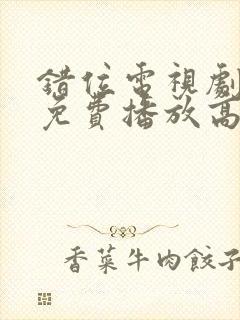 錯位電視劇
免費播放高
香菜牛肉餃子